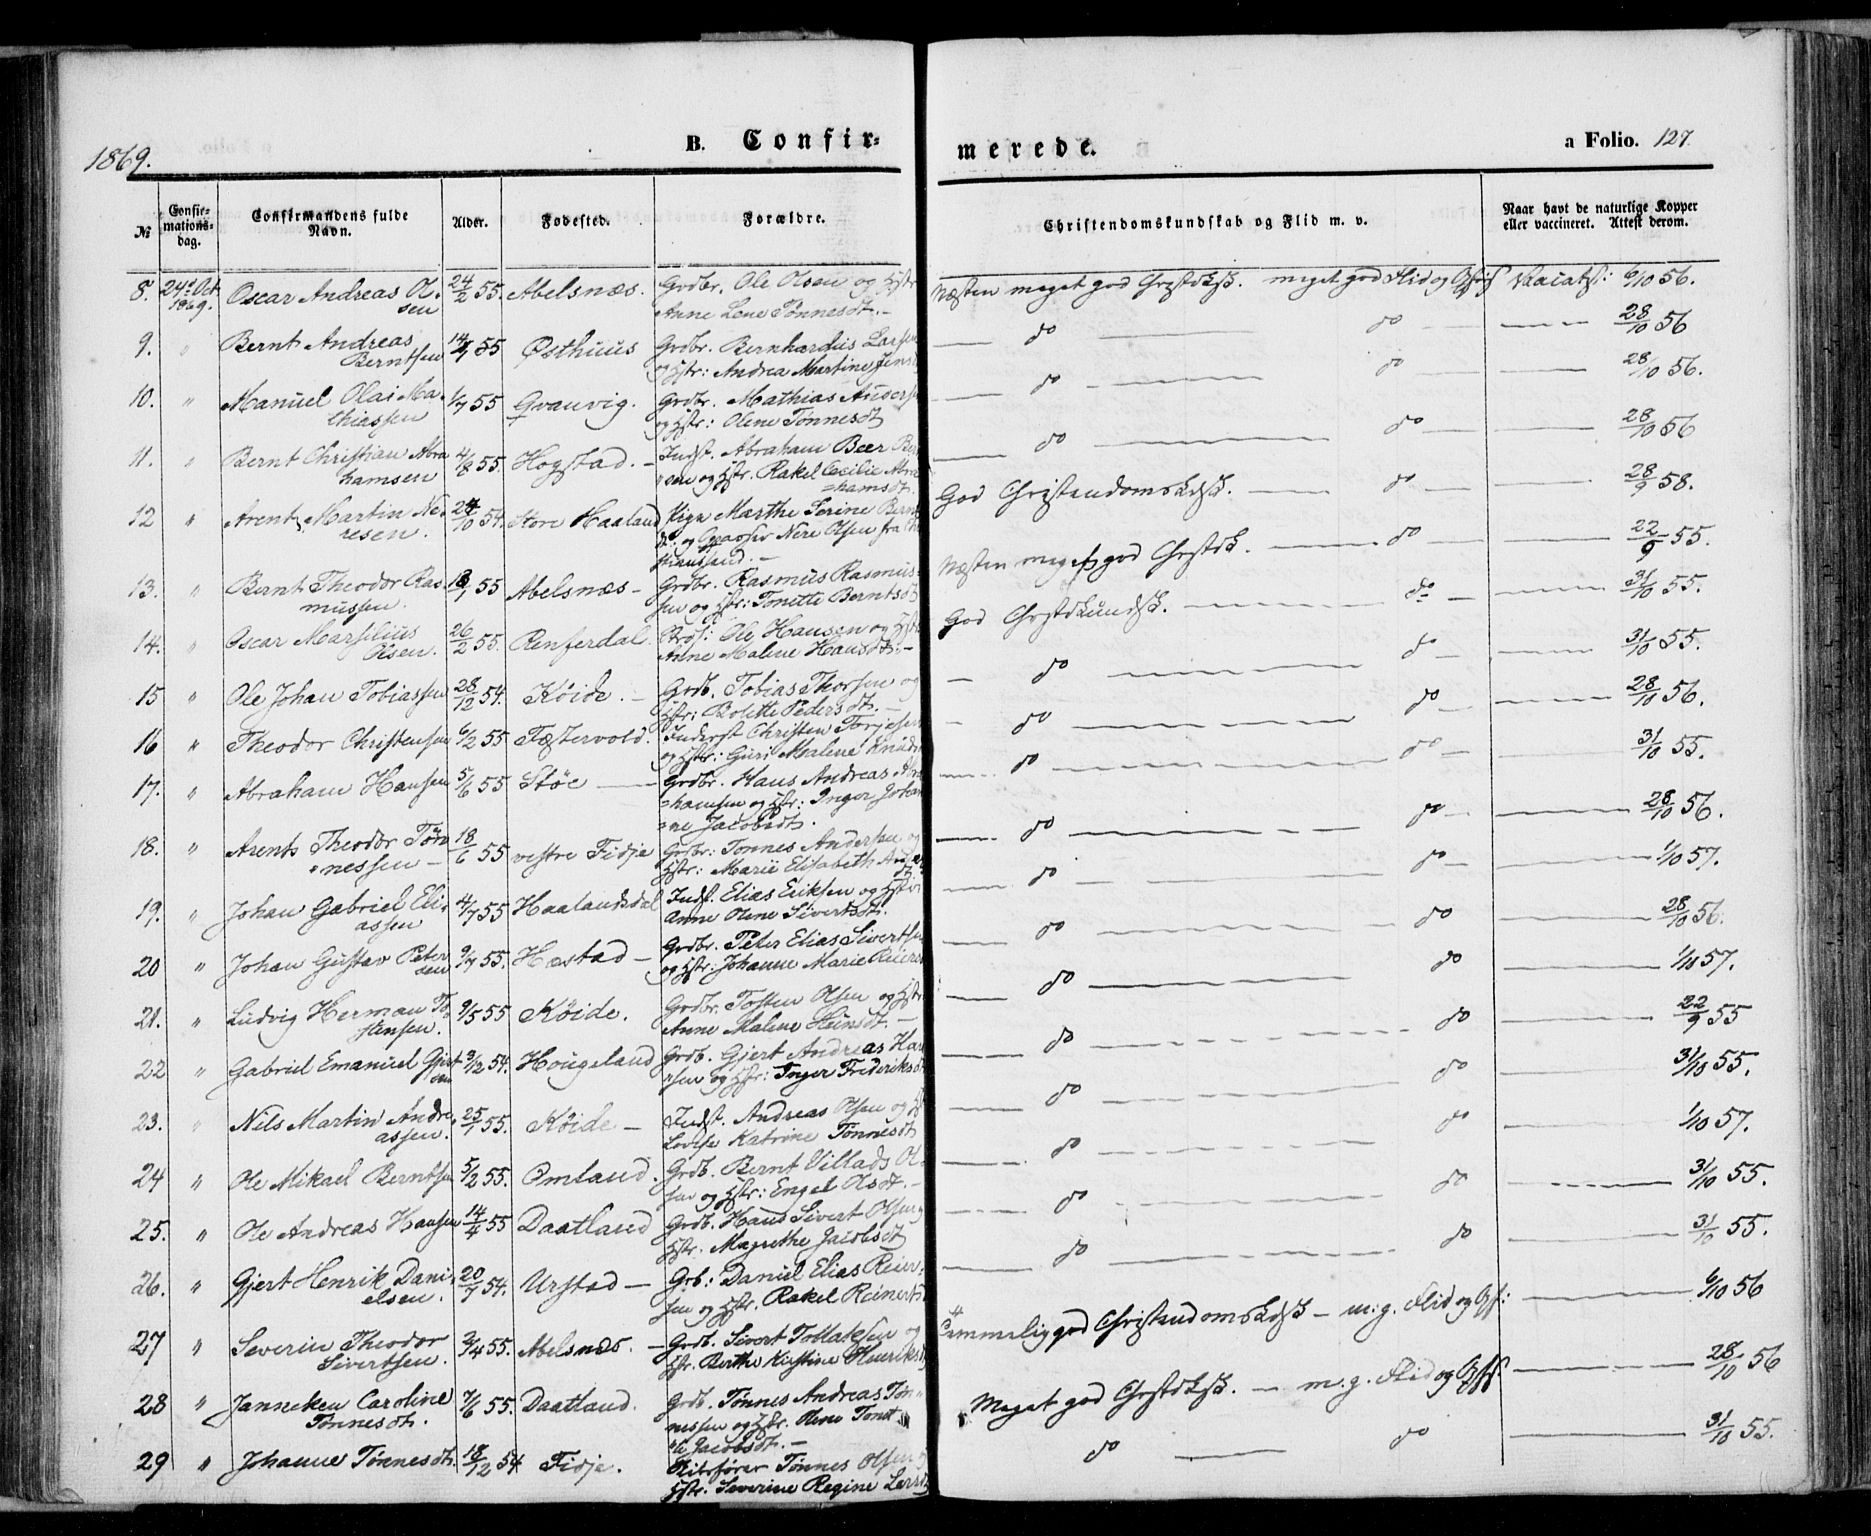 1869.
B. Confir-
merede.
a Folio. 127.
№
Confir-
mations-
dag.
Confirmandens fulde
Navn.
Alder.
Fødested.
Forældre.
Christendomskundskab og Flid m. v.
Naar havt de naturlige Kopper
eller vaccineret. Attest derom.
8. 24de Oct. 1869. Oscar Andreas Ol-
sen 24/2 55. Abelsnæs. Grdbr. Ole Olsen og Hstr
Anne Lene Tønnesdt. Næsten meget god Chrstdksk. meget god Flid og 6/10 56.
9. " Bernt Andreas
Berntsen 55 Østhuus Grdbr. Bernhardus Larsen
og Hstr: Andrea Martine do do 28/10 56
10. " Manuel Olai Ma-
thiassen 1/7 55 Qvanvig. Grdbr. Mathias Anders
og Hstr: Olene Tønnesdt do do 28/10 56.
11. " Bernt Christian Abra
hamsen 4/8 55. Hogstad. Indst. Abraham Beer
sen og Hstr. Rakel Cecilie Abra
=hamsdt. do do 28/10 56
12 " Arent Martin Ne-
resen. 54. Store Haaland Pige Marthe Serine Bernt
dt: og Nere Olsen fra God Christendomskdsk. do 28/9 58.
13. " Bernt Theodor Ras-
mussen. 55 Abelsnæs Grdbr. Rasmus Rasmus-
sen og Hstr: Tonette Berntsdt Næsten meget god Chrstdk. do 22/9 55.
14. " Oscar Marsilius
Olsen. 26/2 55. Renferdal. Ole Hansen og Hstr
Anne Malene Hansdt. God Chrstdkundsk. do 31/10 55.
15 " Ole Johan Tobiassen 28/12 54. Köide. Grdb. Tobias Thorsen og
Hstr: Bolette Pedersdt. do do 31/10 55.
16 " Theodor Christensen 6/2 55 Fæstervold. Inderst Christen Torjesen
og Hstr: Guri Malene Knuds do do 28/10 56.
17. " Abraham Hansen 5/6 55 Støe Grdbr. Hans Andreas Abra
=hamsen og Hstr: Inger Johan
=ne Jacobsdt. do do 31/10 55.
18. " Arents Theodor Tøn
nessen 18/6 55 vestre Fidje Grdbr: Tonnes Andersen og
Hstr: Marie Elisabeth do do 28/10 56.
19. " Johan Gabriel Eli-
assen 4/7 55 Haalandsdal Indst. Elias Eriksen og Hstr:
Anne Olene Sivertsdt. do do 1/10 57.
20 " Johan Gustav Peter
sen 9/7 55. Hæstad Grdbr. Peter Elias Sivertsen
og Hstr: Johanne Marie Reiers do do 28/10 56.
21. " Ludvig Herman To-
stensen. 9/5 55 Köide. Grdbr. Tosten Olsen og Hstr
Anne Malene do do 1/10 57.
22 " Gabriel Emanuel Gjert
sen 3/12 54. Hougeland Grdb. Gjert Andreas Han
sen og Hstr: Inger Frederiksdt do do 22/9 55
23. " Nils Martin Andre-
assen. 25/1 55. Köide Indst. Andreas Olsen og
Lovise Katrine Tonnesdt do do 31/10 55.
24 " Ole Mikael Berntsen 5/2 55. Omland. Grdb. Bernt Villads Ol-
sen og Hstr: Engel Olsdt. do do 1/10 57.
25. " Ole Andreas Hansen 14/4 55 Daatland Grdb. Hans Sivert Olsen
Hstr. Magrethe Jacobsdt do do 31/10 55.
26. " Gjert Henrik Dani-
elsen. 20/7 54. Urstad Grb: Daniel Elias Reier-
sen og Hstr. Rakel Reinerts do do 31/10 55.
27 " Severin Theodor
Sivertsen. 2/4 55. Abelsnæs. Grdb. Sivert Tollaksen og
Hstr. Berthe Kirstine Henriksd Temmelig god Christendomskdsk m. g. Flid og 6/10 56
28 " Janneken Caroline
Tønnesdt. 7/6 55. Daatland. Grdb. Tønnes Andreas Tøn-
nessen og Hstr. Olene Tonet
te Jacobsdt. Meget god Chrstdksk. m. g. Flid og 28/10 56
29 " Johanne Tønnesdt. 18/12 54 Fidje. Skibsfører Tønnes Olsen
Hstr. Severine Regine Larsd do do 31/10 55.